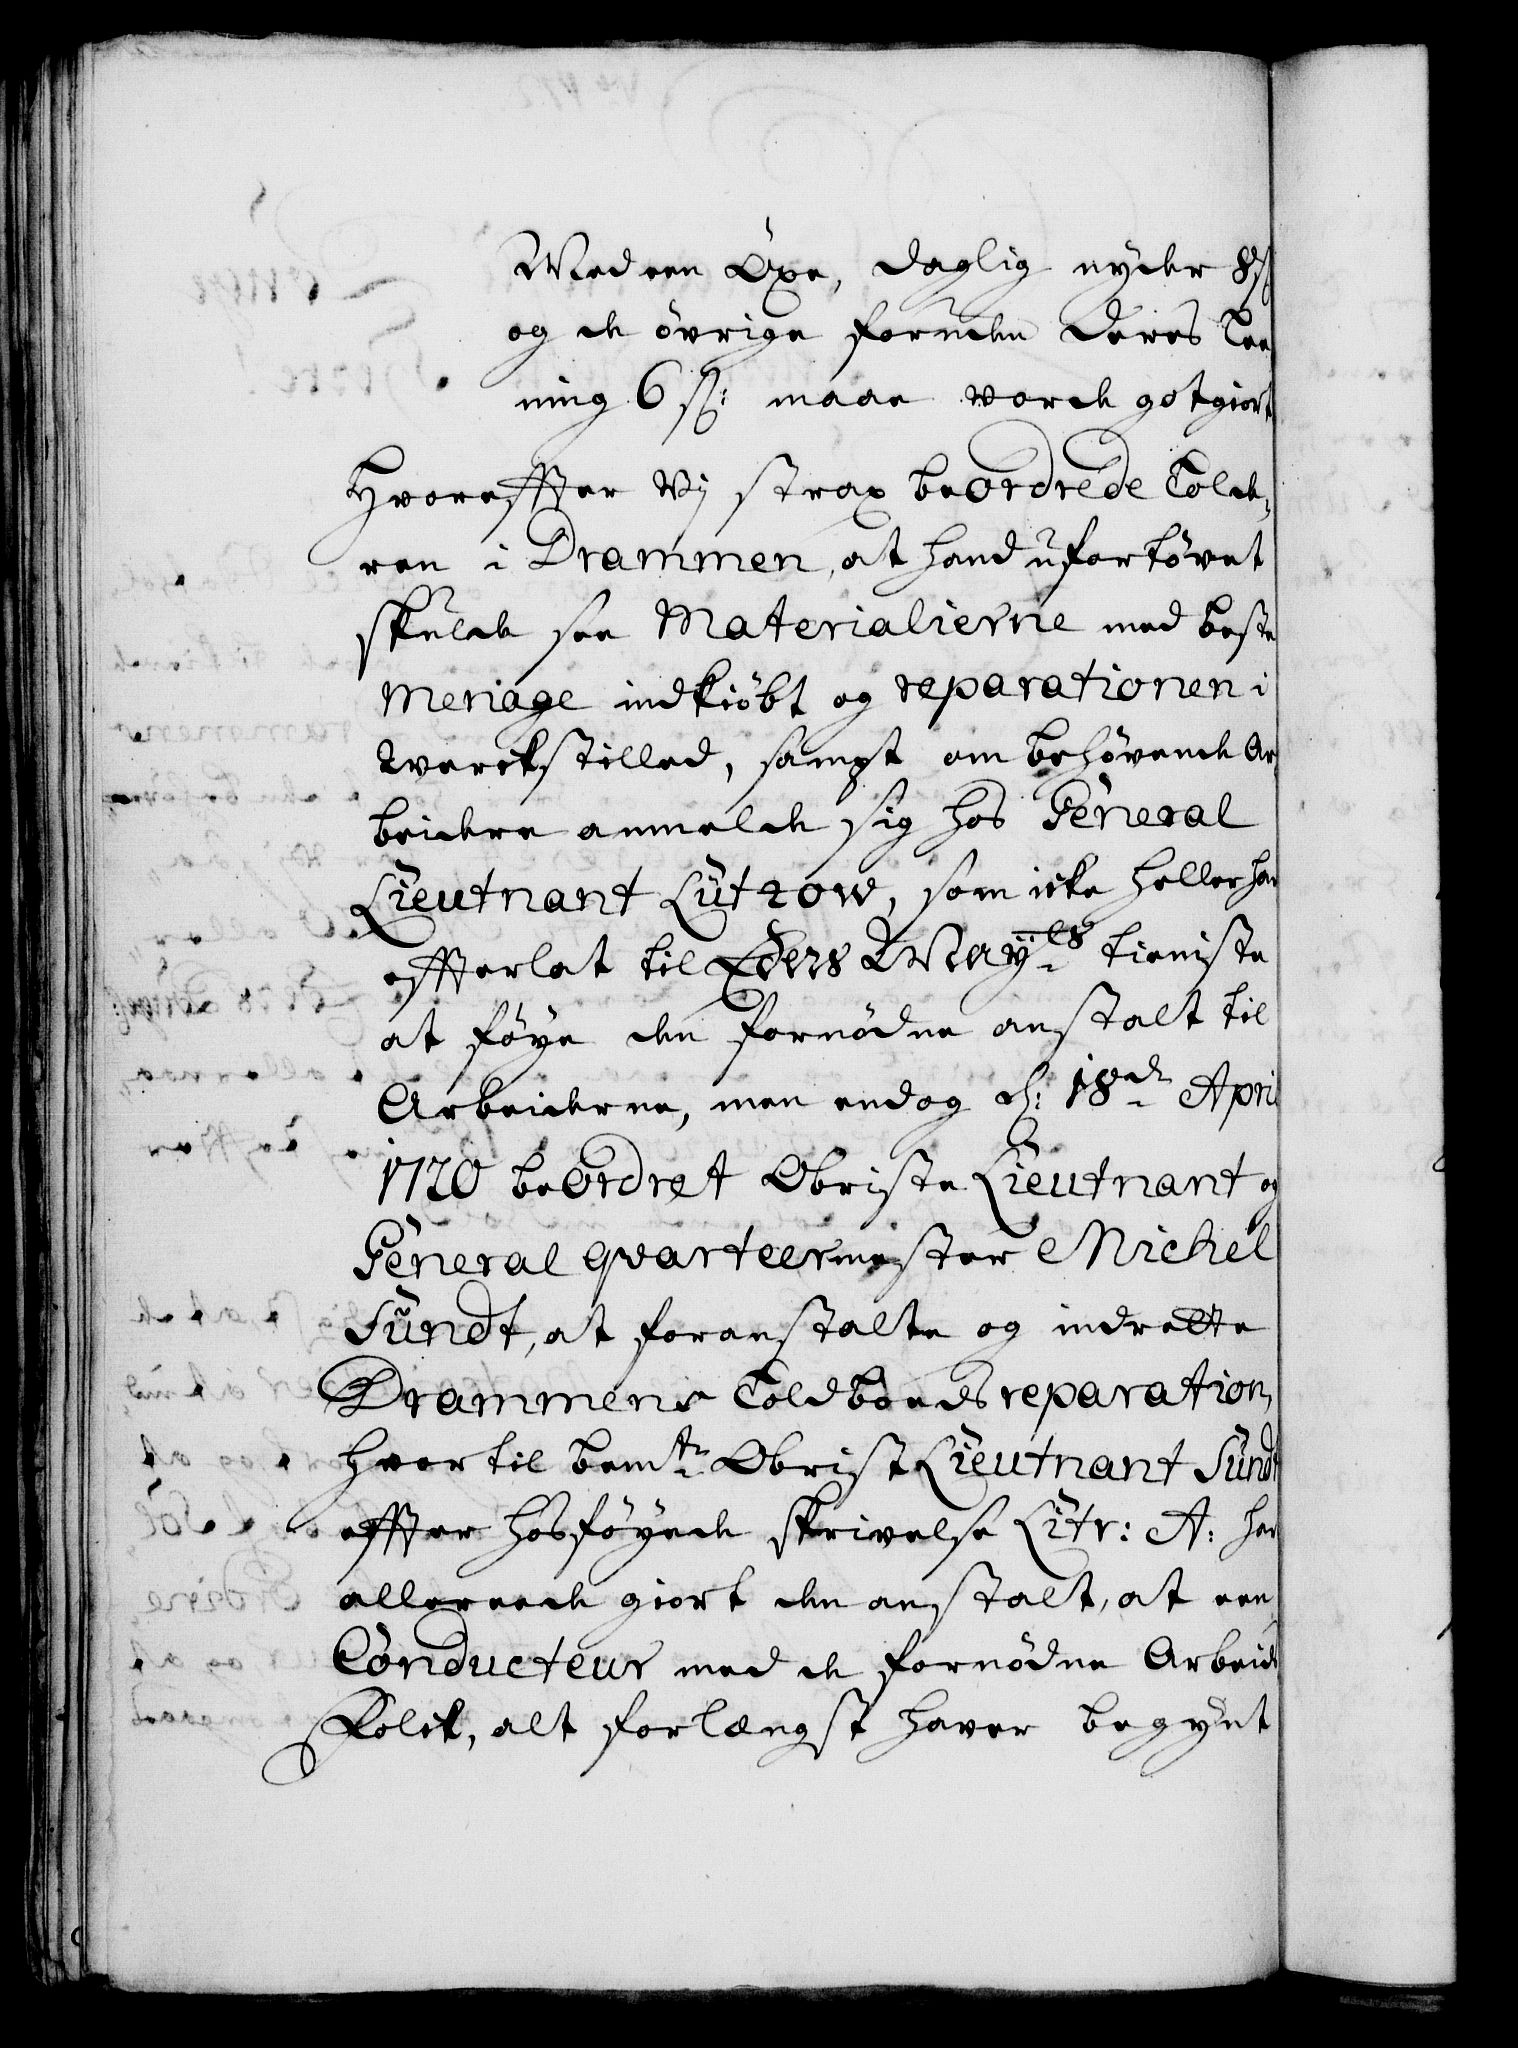 Med een Öxe, daglig nyder 8 ß
og de övrige foruden deres Tee
ning 6 ß: maae vorde gotgiort
Hvoreffter Vÿ strax beordrede Tolde-
ren i Drammen, at hand ufortövet
skulde see Materialierne med beste
Menage indkiöbt og reparationen i
Werckstilled, sampt om behövende Ar
beidere anmelde sig hos General
Lieutnant Lützow, som icke heller har
effterlat til Eders Maÿts tieniste
at föye den fornödne anstalt til
Arbeiderne, men endog d: 18de April
1720 beordret Obriste Lieutnant og
General qvarteermester Michel
Sundt, at foranstalte og indrette
Drammens Toldboeds reparation,
hvortil bemte Obrist Lieutnant Sundt
effter hosföyede skrivelse Litr: A: har
allereede giort den anstalt, at een
Conducteur med de fornödne Arbeids
Folck, alt forlængst haver begynt